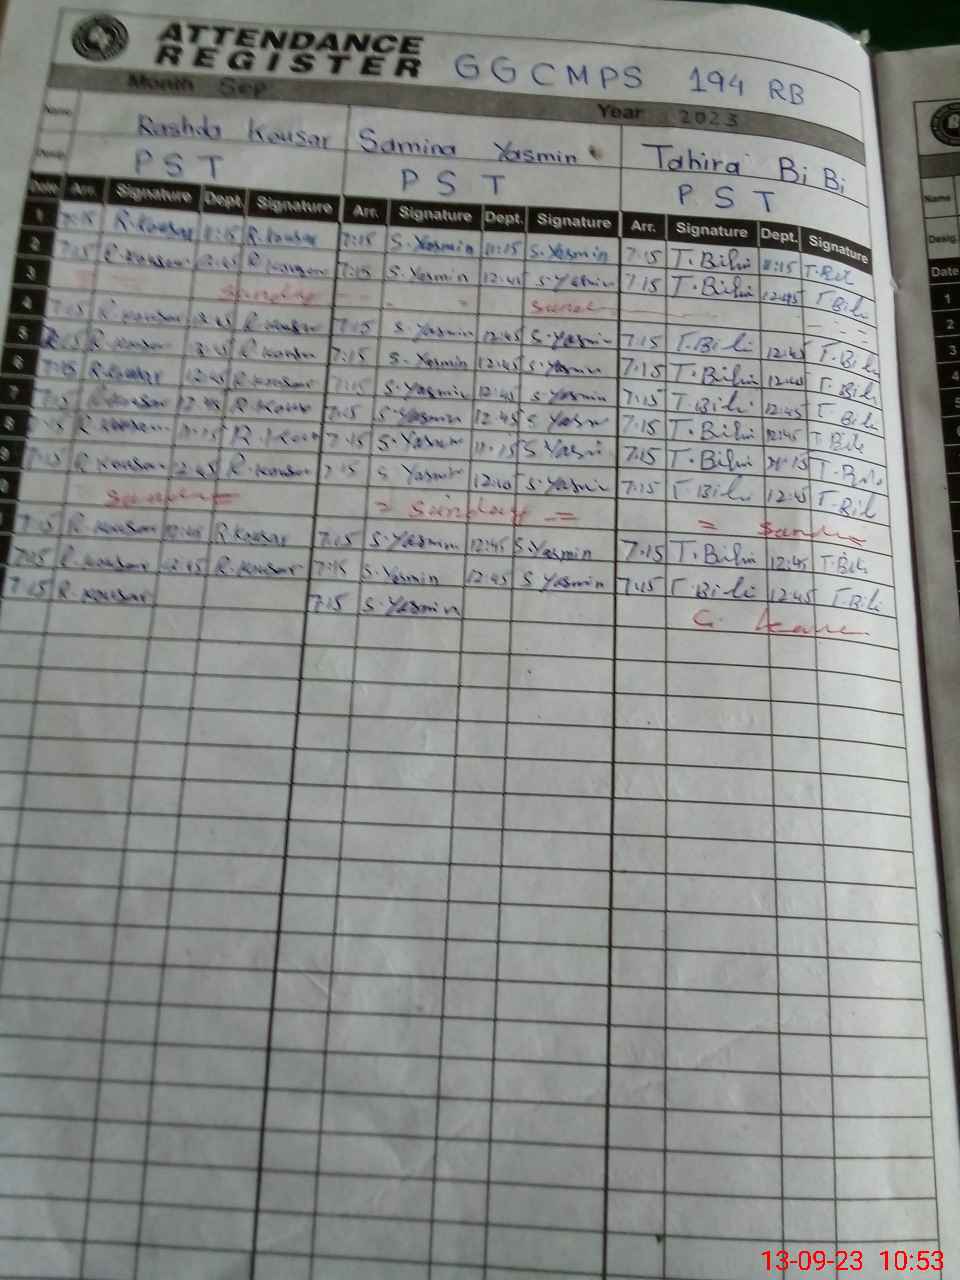 ATTENDANCE
REGISTER GGCMPS 194 RB
Month Sep Year 2023
Name Rashda Kousar Samina Yasmin Tahira Bi Bi
PST PST PST
Date Arr. Signature Dept. Signature Arr. Signature Dept. Signature Arr. Signature Dept. Signature
1 7:15 R.Kousar 11:15 R.Kousar 7:15 S.Yasmin 11:15 S.Yasmin 7:15 T.Bibi 11:15
2 7:15 R.Kousar 12:45 R.Kousar 7:15 S.Yasmin 12:45 S.Yasmin 7:15 T.Bibi 12:45 T.Bibi
3 Sunday
4 7:15 R.Kousar 12:45 R.Kousar 7:15 S.Yasmin 12:45 S.Yasmin 7:15 T.Bibi 12:45 T.Bibi
5 7:15 R.Kousar 12:45 R.Kousar 7:15 S.Yasmin 12:45 S.Yasmin 7:15 T.Bibi 12:45 T.Bibi
6 7:15 R.Kousar 12:45 R.Kousar 7:15 S.Yasmin 12:45 S.Yasmin 7:15 T.Bibi 12:45 T.Bibi
7 R.Kousar 12:45 R.Kousar 7:15 S.Yasmin 12:45 S.Yasmin 7:15 T.Bibi 12:45 T.Bibi
8 7:15 S.Yasmin 11:15 S Yasmin 7:15 T.Bibi 11:15 T.Bibi
9 7:15 R.Kousar 12:45 R.Kousar 7:15 S Yasmin S.Yasmin 7:15 T.Bibi 12:45
Sunday = Sunday = = Sunday
7:15 R.Kousar 12:45 R.Kousar 7:15 S.Yasmin 12:45 S.Yasmin 7:15 T.Bibi 12:45 T.Bibi
7:15 R.Kousar 12:45 R.Kousar 7:15 S.Yasmin 12:45 S.Yasmin 7:15 T.Bibi 12:45 T.Bibi
7:15 R.Kousar 7:15 S.Yasmin C. Leave
Name
Desig.
Date
1
2
3
4
5
13-09-23 10:53